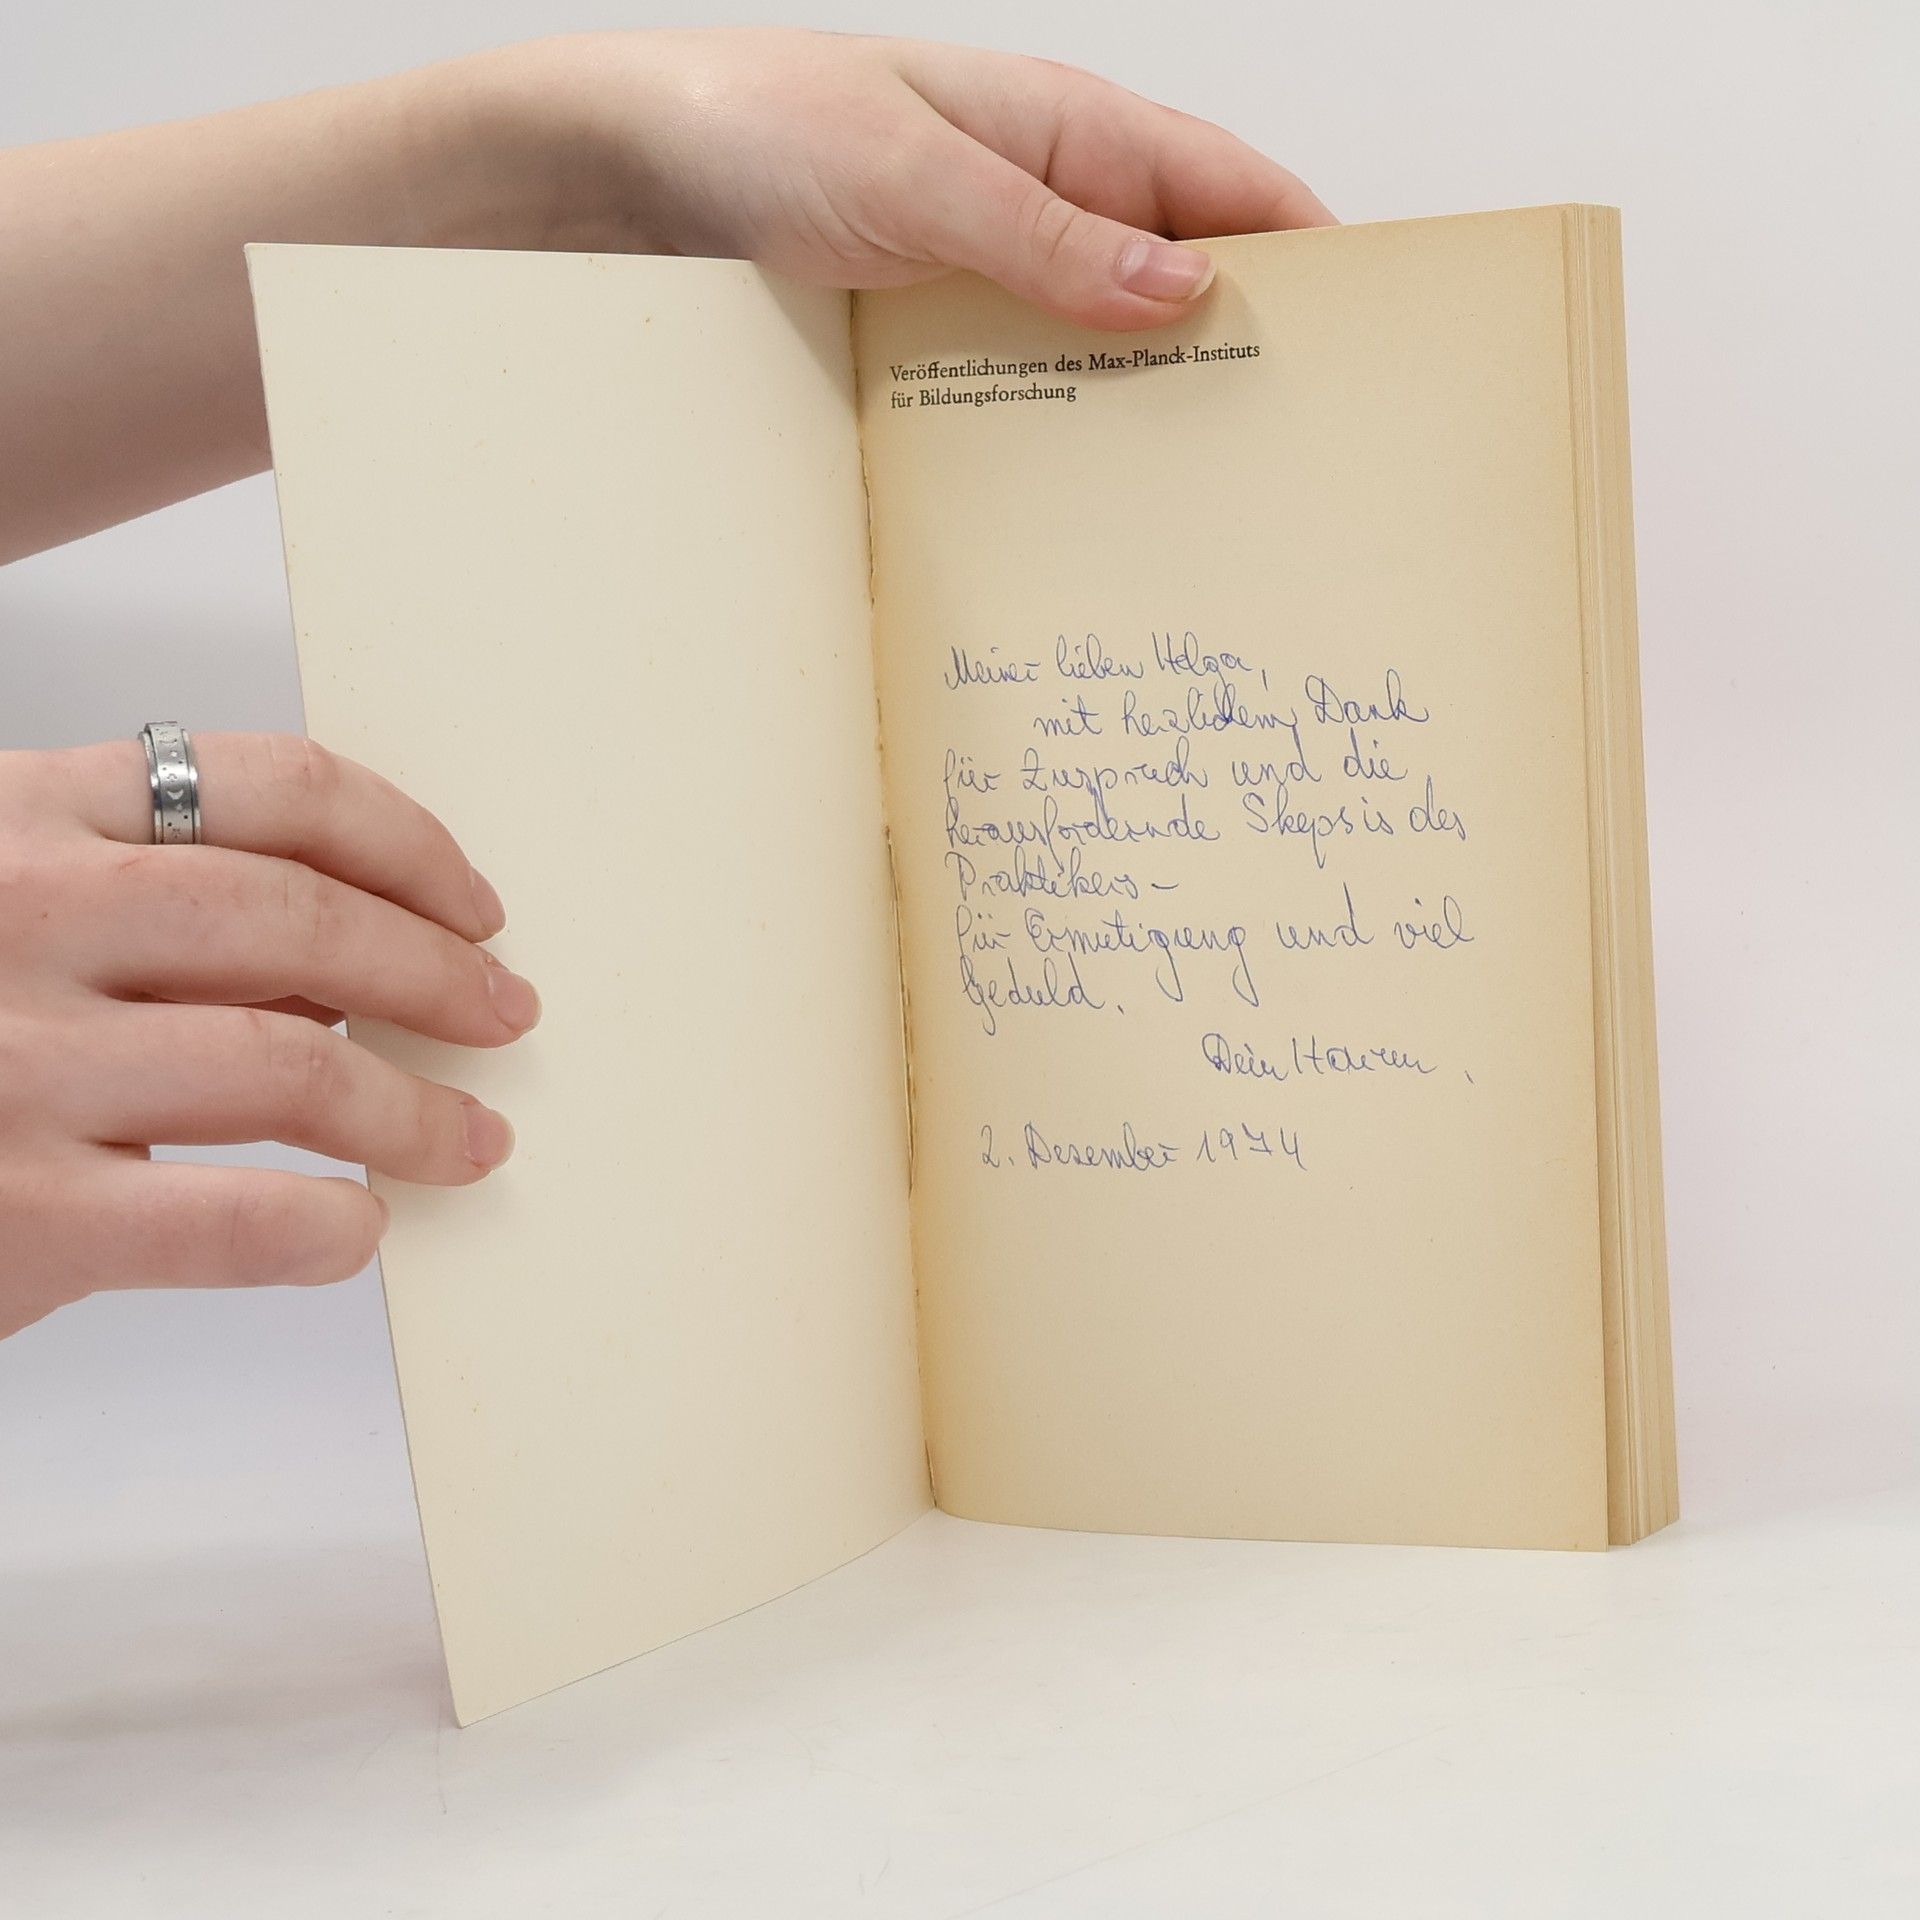 Veröffentlichungen des Max-Planck-Instituts
für Bildungsforschung
Meiner lieben Helga,
mit herzlichem Dank
für Zuspruch und die
herausfordernde Skepsis des
Praktikers –
für Ermutigung und viel
Geduld.
Dein
2. Dezember 1974